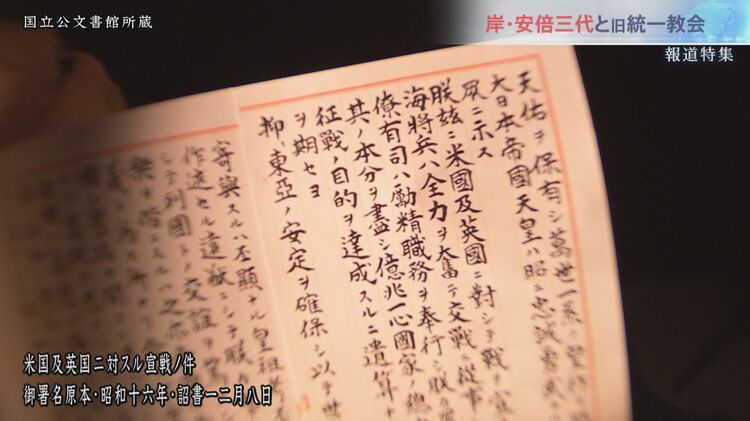 国立公文書館所蔵
岸・安倍三代と旧統一教会
報道特集
天佑ヲ保有シ萬世一系ノ
大日本帝國天皇ハ昭ニ忠誠勇武
眾ニ示ス
朕茲ニ米國及英國ニ對シテ戰ヲ宣
海將兵ハ全力ヲ奮テ交戰ニ從事
僚有司ハ勵精職務ヲ奉行シ朕
其ノ本分ヲ盡シ億兆一心國家ノ總
征戰ノ目的ヲ達成スルニ遺算ナ
ヲ期セヨ
抑〻東亞ノ安定ヲ確保シ以テ世
寄與スルハ丕顯ナル皇祖
作述セル遠猷ニシテ朕カ
シテ列國トノ交誼ヲ
榮ヲ偕ニスルハ之亦
米国及英国ニ対スル宣戦ノ件
御署名原本・昭和十六年・詔書一二月八日